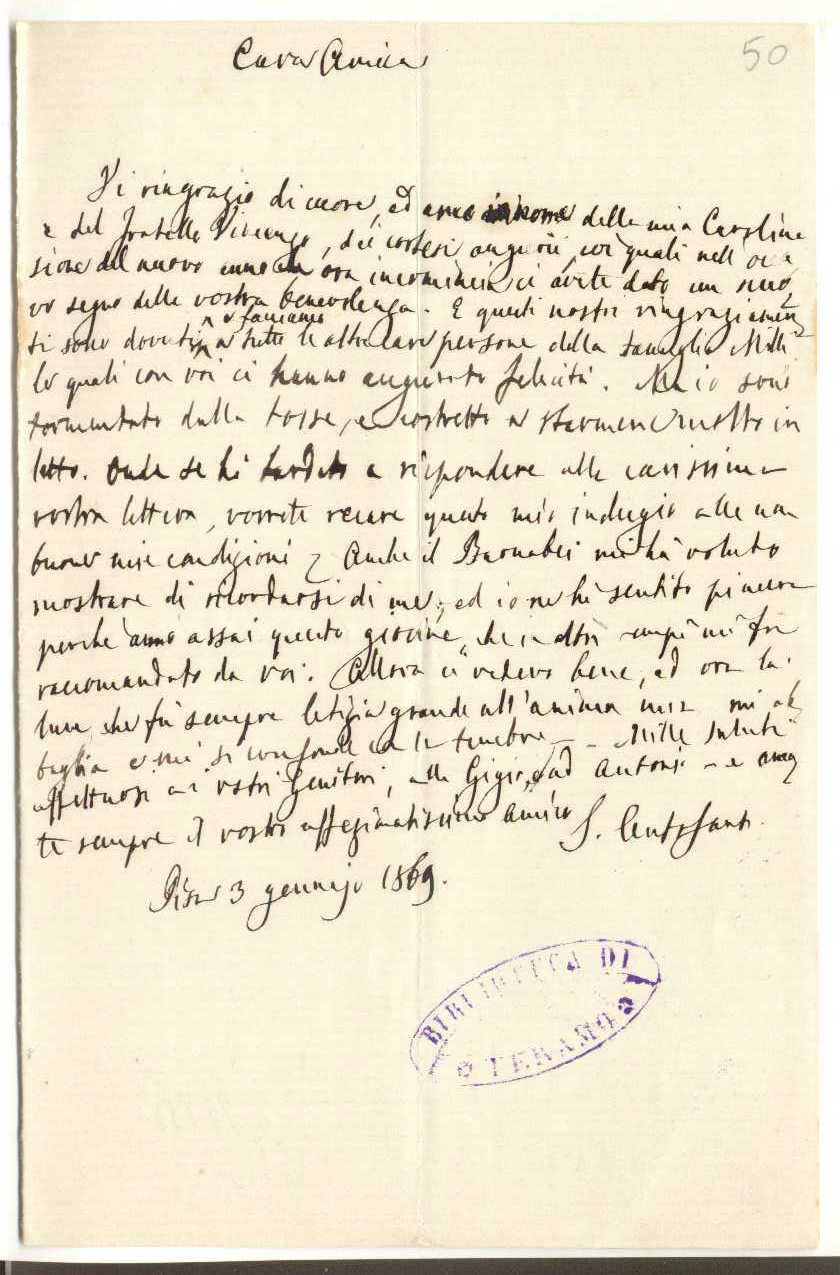 50
Cara Amica
Vi ringrazio di cuore, ed anco in nome della mia Carolina
e del fratello Vincenzo, dei cortesi augurii, coi quali nell'occa
sione del nuovo anno che ora incomincia ci avete dato un nuo
vo segno della vostra benevolenza. E questi nostri ringraziamen
ti sono dovuti a tutte le altre care persone della famiglia Milli
le quali con voi ci hanno augurato felicità. Ma io sono
tormentato dalla tosse, e costretto a starmene molto in
letto. Onde se ho tardato a rispondere alla carissima
vostra lettera, vorrete recare questo mio indugio alle non
buone mie condizioni. Anche il Barnabei mi ha voluto
mostrare di ricordarsi di me, ed io ne ho sentito piacere
perché amo assai questo giovine, che in altri tempi mi fu
raccomandato da voi. Allora ci vedevo bene, ed ora la
luce, che fu sempre letizia grande all'anima mia mi ab
baglia e mi si confonde con le tenebre — Mille saluti
affettuosi ai vostri Genitori, alla Gigia, ad Antonio — e ama
te sempre il vostro affezionatissimo amico
S. Centofanti.
Pisa 3 gennajo 1869.
BIBLIOTECA DI
TERAMO